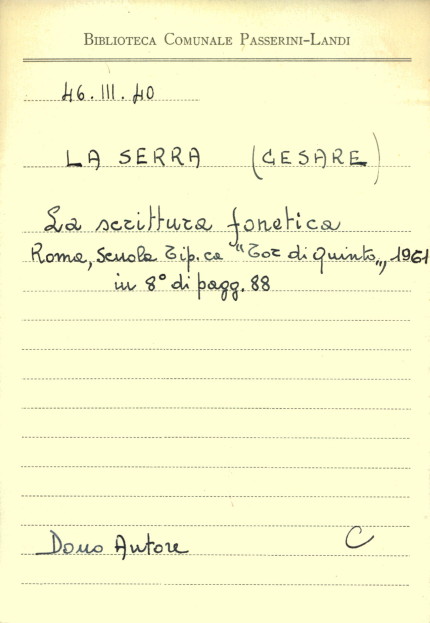 BIBLIOTECA COMUNALE PASSERINI-LANDI
46.III.40
LA SERRA (CESARE)
La scrittura fonetica
Roma, Scuola Tip.ca "Tor di Quinto„, 1961
in 8° di pagg. 88
Dono Autore C